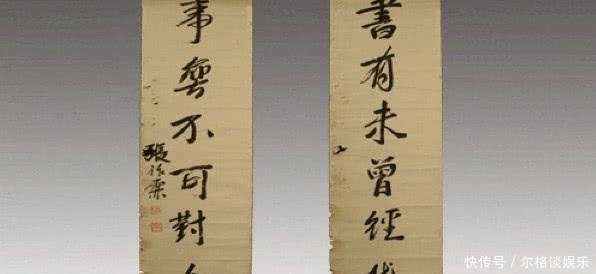 書有未曾經
事無不可對
張作霖
快传号／尔格谈娱乐